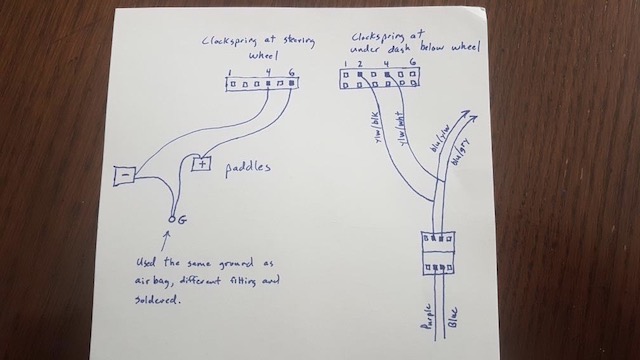 Clockspring at steering
wheel
1 4 6
-
+
paddles
G
Used the same ground as
air bag, different fitting and
soldered.
Clockspring at
under dash below wheel
1 2 4 6
ylw/blk
ylw/wht
blu/ylw
blu/gry
Purple
Blue